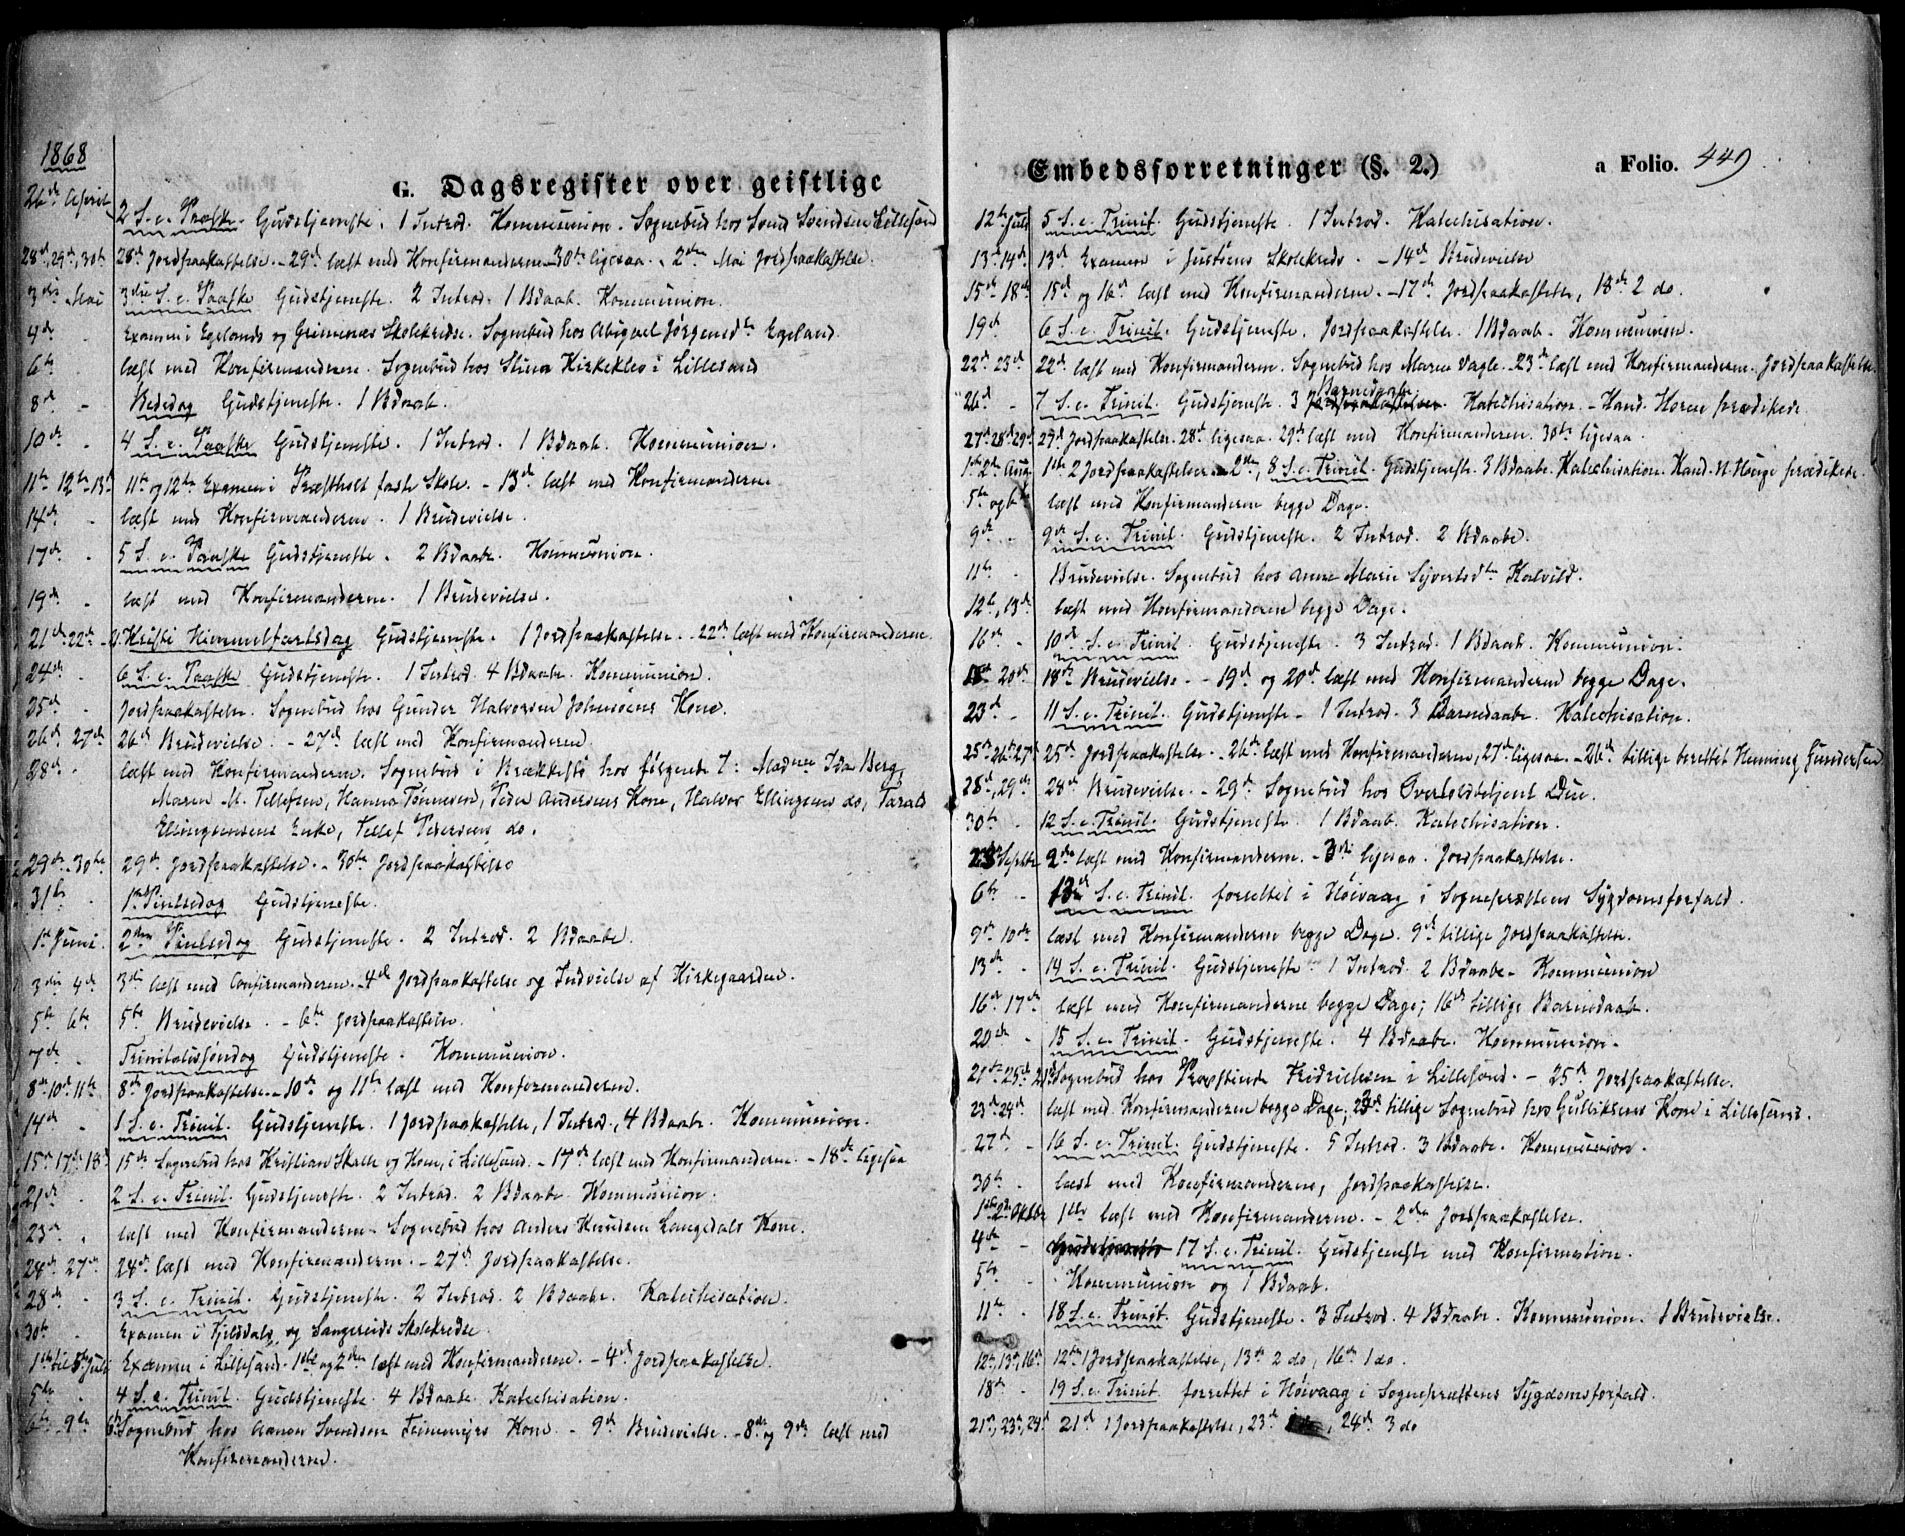 1868
G. Dagsregister over geistlige
26de April 2 S. e. Paaske Gudstjeneste. 1 Introd. Kommunion. Sognebud hos Svend Svendsen Lillesand
28de, 29de, 30te 28de Jordpaakastelse. - 29de læst med Konfirmanderne - 30te ligesaa. - 2den Mai Jordpaakastelse.
3die Mai 3die S. e. Paaske Gudstjeneste. 2 Introd. 1 Bdaab. Kommunion.
4de Examen i Egelands og Grimenæs Skolekredse. Sognebud hos Abigael Jørgensdtr Egeland.
6te - læst med Konfirmanderne. Sognebud hos Stina Kirkeklev i Lillesand
8de - Bededag Gudstjeneste. 1 Bdaab.
10de - 4 S. e. Paaske Gudstjeneste. 1 Introd. 1 Bdaab. Kommunion.
11te 12te - 13de 11te og 12te Examen i Præstholt faste Skole. - 13de læst med Konfirmanderne
14de - læst med Konfirmanderne. 1 Brudevielse.
17de - 5 S. e. Paaske Gudstjeneste. 2 Bdaabe. Kommunion.
19de - læst med Konfirmanderne. 1 Brudevielse.
21de 22de - Kristi Himmelfartsdag Gudstjeneste. 1 Jordpaakastelse. - 22de læst med Konfirmanderne.
24de 6 S. e. Paaske Gudstjeneste. 1 Introd. 4 Bdaabe. Kommunion.
25de - Jordpaakastelse. Sognebud hos Gunder Halvorsen Johnsøens Kone.
26de 27de 26de Brudevielse. - 27de læst med Konfirmanderne.
28de - læst med Konfirmanderne. Sognebud i Brækkestø hos følgende 7: Madme Ida Berg,
Maren M. Tellefsen, Hanna Tønnesen, Peder Andersens Kone, Halvor Ellingsens do, Tarald
Ellingsensens Enke, Tellef Pedersens do.
29de - 30te 29de Jordpaakastelse. - 30te Jordpaakastelse
31te - 1ste Pintsedag Gudstjeneste.
1ste Juni. 2den Pintsedag Gudstjeneste. 2 Introd. 2 Bdaabe.
3die 4de 3die læst med Confirmanderne. - 4de Jordpaakastelse og Indvielse af Kirkegaarden.
5te 6te 5te Brudevielse. - 6te Jordpaakastelse.
7de - Trinitatissøndag Gudstjeneste. Kommunion.
8de 10de 11te 8de Jordpaakastelse. - 10de og 11te læst med Konfirmanderne.
14de - 1 S. e. Trinit. Gudstjeneste. 1 Jordpaakastelse, 1 Introd., 4 Bdaabe. Kommunion.
15de 17de 18de 15de Sognebud hos Kristian Skalle og Kone, i Lillesand. - 17de læst med Konfirmanderne. - 18de ligesaa
21de - 2 S. e. Trinit. Gudstjeneste. 2 Introd. 2 Bdaabe Kommunion.
23de - læst med Konfirmanderne - Sognebud hos Anders Knudsen Langedals Kone.
24de 27de 24de læst med Konfirmanderne. - 27de Jordpaakastelse.
28de - 3 S. e. Trinit. Gudstjeneste. 2 Introd. 2 Bdaabe. Katechisation.
30te - Examen i Tjelddals og Sangereids Skolekredse.
1ste til 5te Juli Examen i Lillesand. 1ste og 2den læst med Konfirmanderne. - 4de Jordpaakastelse.
5te - 4 S. e. Trinit. Gudstjeneste. 4 Bdaabe. Katechisation.
6te - 9de 6te Sognebud hos Aanon Svendsen Kone - 9de Brudevielse. - 8de og 9de læst med
Konfirmanderne.
Embedsforretninger (§. 2.) a Folio. 449
12te Juli 5 S. e. Trinit. Gudstjeneste. 1 Introd. Katechisation.
13de 14de 13de Examen i Justøens Skolekreds. - 14de Brudevielse
15de 18de 15de og 16de læst med Konfirmanderne. - 17de Jordpaakastelse, 18de 2 do.
19de 6 S. e. Trinit. Gudstjeneste. Jordpaakastelse. 1 Bdaab. Kommunion.
22de 23de 22de læst med Konfirmanderne. Sognebud hos Maren Vagle. - 23de læst med Konfirmanderne. Jordpaakastelse.
26de - 7 S. e. Trinit. Gudstjeneste. 3 Barnedaabe Katechisation. - Kand. Horne prædikede.
27de 28de 29de 27de Jordpaakastelse. 28de ligesaa. 29de læst med Konfirmanderne. 30te ligesaa.
1ste 2den Aug 1ste 2 Jordpaakastelser. 2den, 8 S. e. Trinit. Gudstjeneste. 3 Bdaabe. Katechisation. Kand. N. Hauge prædikede.
5te og 6te læst med Konfirmanderne begge Dage.
9de - 9de S. e. Trinit. Gudstjeneste. 2 Introd. 2 Bdaabe.
11te - Brudevielse. Sognebud hos Anne Marie Syvertsdtr Kalvild.
12te, 13de læst med Konfirmanderne begge Dage.
16de - 10de S. e. Trinit. Gudstjeneste. 3 Introd. 1 Bdaab. Kommunion.
18de 20de 18de Brudevielse. - 19de og 20de læst med Konfirmanderne begge Dage.
23de - 11 S. e. Trinit. Gudstjeneste - 1 Introd. 3 Barnedaabe. Katechisation.
25de 26de 27de 25de Jordpaakastelse. - 26de læst med Konfirmanderne, 27de ligesaa. - 26de tillige berettet Henning Gundersen
28de, 29de 28de Brudevielse. - 29de Sognebud hos Overtoldbetjent Due.
30te - 12 S. e. Trinit. Gudstjeneste. 1 Bdaab. Katechisation.
2 3 Septbr 2den læst med Konfirmanderne. - 3die ligesaa. Jordpaakastelse.
6te - 13de S. e. Trinit. forrettet i Høivaag i Sognepræstens Sygdomsforfald.
9de 10de læst med Konfirmanderne begge Dage. 9de tillige Jordpaakastelse.
13de - 14 S. e. Trinit. Gudstjeneste. 1 Introd. 2 Bdaabe. Kommunion
16de 17de læst med Konfirmanderne begge Dage; 16de tillige Barnedaab.
20de - 15 S. e. Trinit. Gudstjeneste. 4 Bdaabe. Kommunion.
21de 25de 21de Sognebud hos Provstinde Fridrichsen i Lillesand. - 25de Jordpaakastelse.
23de 24de læst med Konfirmanderne begge Dage, 23de tillige Sognebud hos Gulliksens Kone i Lillesand.
27de - 16 S. e. Trinit. Gudstjeneste. 5 Introd. 3 Bdaabe. Kommunion.
30te - læst med Konfirmanderne, Jordpaakastelse.
1ste 2den Oktbr 1ste læst med Konfirmanderne. - 2den Jordpaakastelse.
4de - Gudstjeneste 17 S. e. Trinit. Gudstjeneste med Konfirmation.
5te - Kommunion og 1 Bdaab.
11te - 18 S. e. Trinit. Gudstjeneste. 3 Introd. 4 Bdaabe. Kommunion. 1 Brudevielse.
12te, 13de, 16de 12te 1 Jordpaakastelse, 13de 2 do, 16de 1 do.
18de - 19 S. e. Trinit. forrettet i Høivaag i Sognepræstens Sygdomsforfald.
21de, 23de, 24de 21de 1 Jordpaakastelse, 23de , 24de 3 do